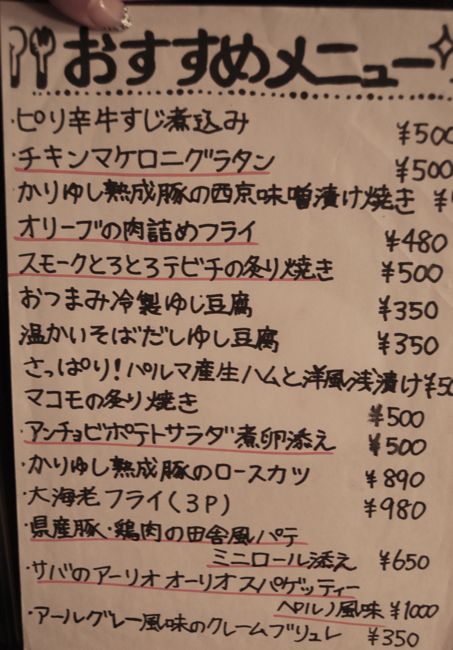 おすすめメニュー
・ピリ辛牛すじ煮込み ¥500
・チキンマケロニグラタン ¥500
かりゆし熟成豚の西京味噌漬け焼き ¥
オリーブの肉詰めフライ ¥480
スモークとろとろテビチの炙り焼き ¥500
おつまみ冷製ゆし豆腐 ¥350
温かいそばだしゆし豆腐 ¥350
さっぱり!パルマ産生ハムと洋風浅漬け ¥50
マコモの炙り焼き ¥500
・アンチョビポテトサラダ 煮卵添え ¥500
・かりゆし熟成豚のロースカツ ¥890
・大海老フライ(3P) ¥980
・県産豚・鶏肉の田舎風パテ
ミニロール添え ¥650
・サバのアーリオオーリオスパゲッティー
ペルノ風味 ¥1000
・アールグレー風味のクレームブリュレ ¥350